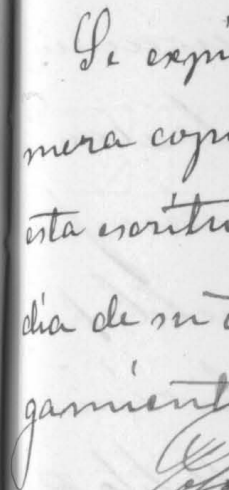 Se expi
mera copi
esta escritu
día de su o
gamient